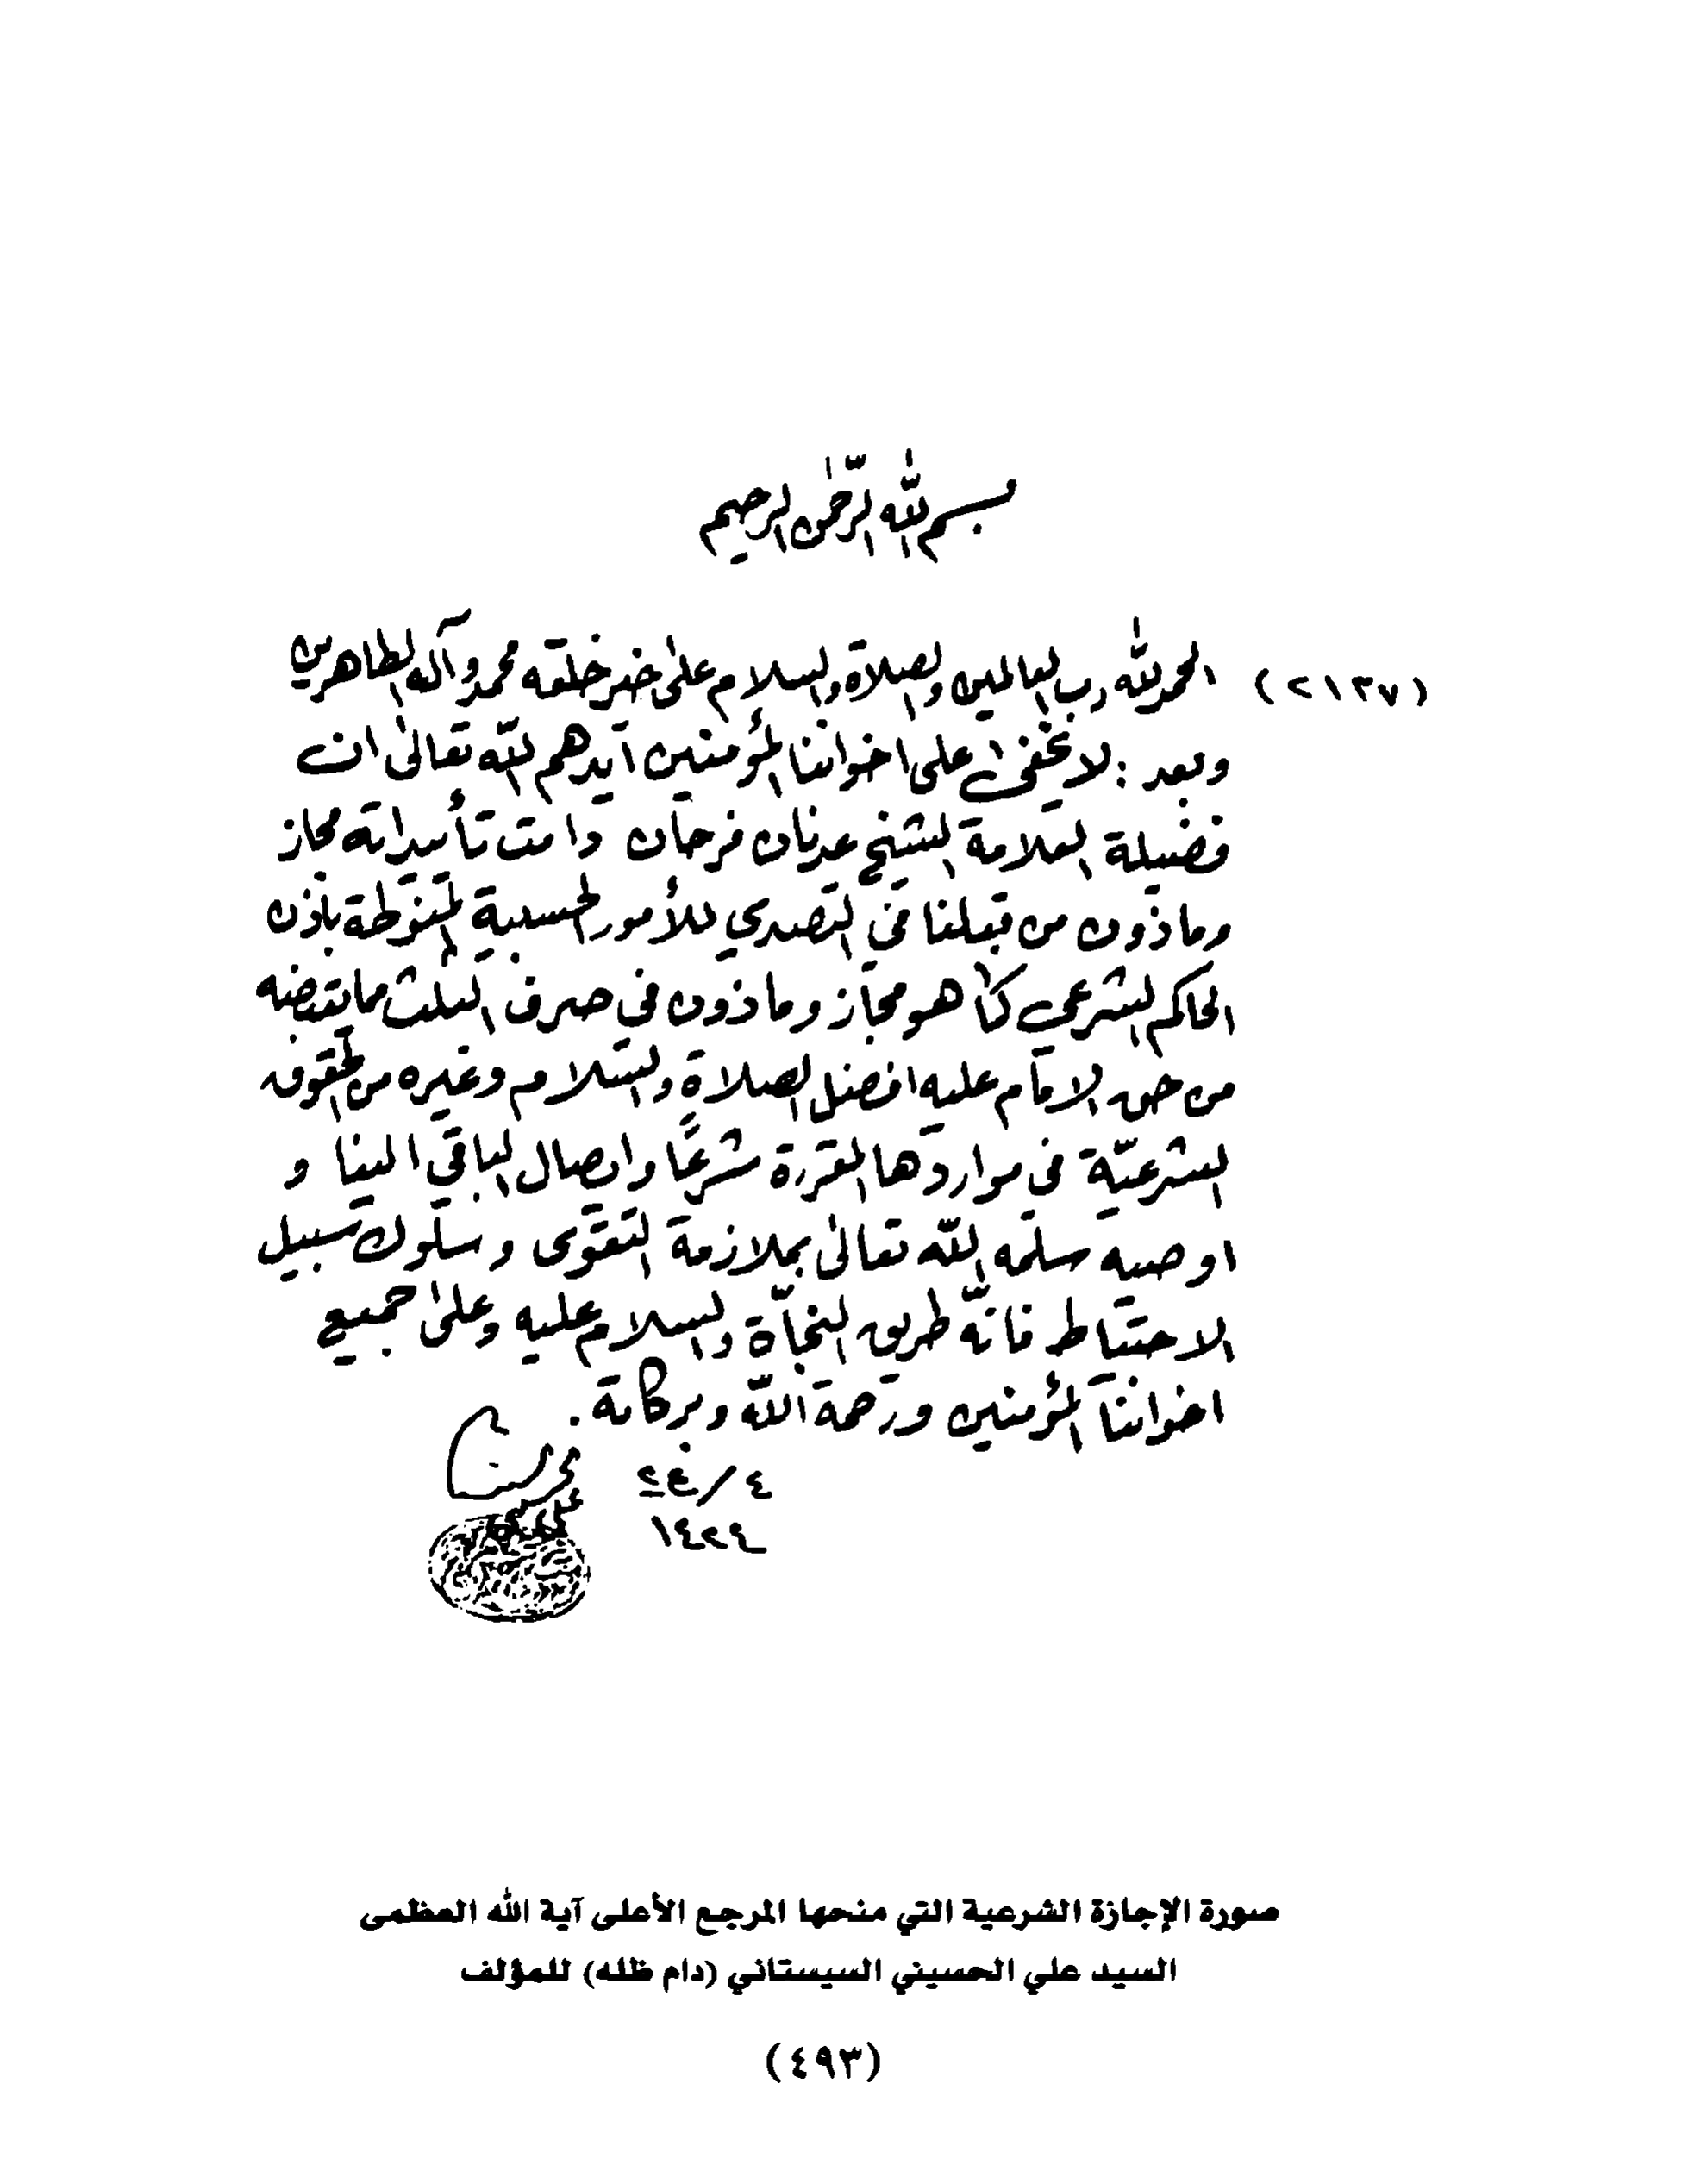 بسم الله الرّحمٰن الرحيم
(٢١٣٧) الحمد لله رب العالمين والصلاة والسلام على خير خلقه محمد وآله الطاهرين
وبعد : لا يخفى على اخواننا المؤمنين ايّدهم الله تعالى ان
فضيلة العلامة الشيخ عدنان فرحان دامت تأييداته مجاز
وماذون من قبلنا في التصدي للأمور الحسبية المنوطة باذن
الحاكم الشرعي كما هو مجاز وماذون في صرف الثلث مما يقبضه
من حق الامام عليه افضل الصلاة والسّلام وغيره من الحقوق
الشرعيّة في مواردها المقررة شرعًا وايصال الباقي الينا و
اوصيه سلّمه اللّه تعالى بملازمة التقوى وسلوك سبيل
الاحتياط فانّه طريق النجاة والسلام عليه وعلى جميع
اخواننا المؤمنين ورحمة اللّه وبركاته .
٢٤/ع٢
١٤٢٤
صورة الإجازة الشرعية التي منحها المرجع الأعلى آية الله العظمى
السيد علي الحسيني السيستاني (دام ظله) للمؤلف
(٤٩٣)